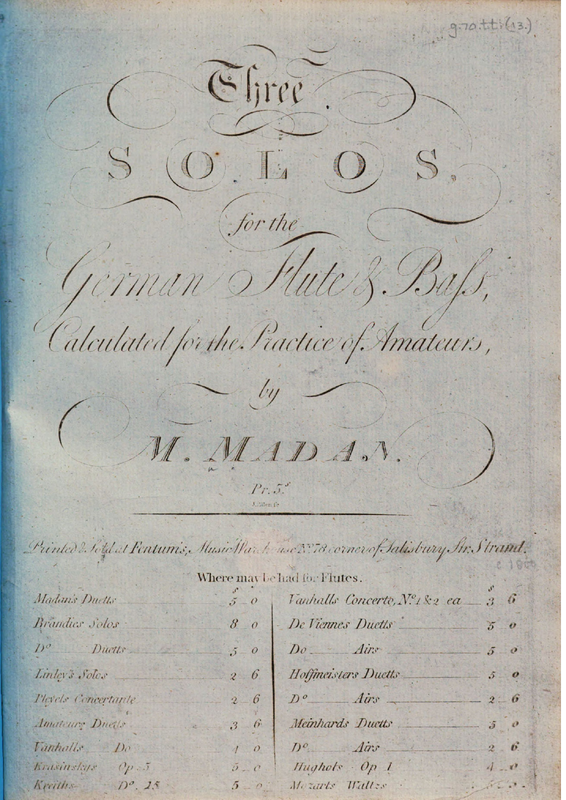 g.70.tt.(13.)
Three
SOLOS.
for the
German Flute & Bass,
Calculated for the Practice of Amateurs,
by
M. MADAN.
Pr. 5.s
Printed & Sold at Fentum's, Music Warehouse No. 78 corner of Salisbury Str. Strand.
Where may be had for Flutes.
s
Madan's Duetts 5 0
Brandies Solos 8 0
Do Duetts 5 0
Linley's Solos 2 6
Pleyels Concertante 2 6
Amateurs Duetts 3 6
Vanhalls Do 4 0
Krasinskys Op 3 5 0
Do. 25 5 0
s
Vanhalls Concerto, No. 1 & 2 ea 3 6
De Viennes Duetts 5 0
Do Airs 5 0
Hoffmeisters Duetts 5 0
Do Airs 2 6
Meinhards Duetts 5 0
Do. Airs 2 6
Hughots Op 1 4 0
Mozarts Waltzs